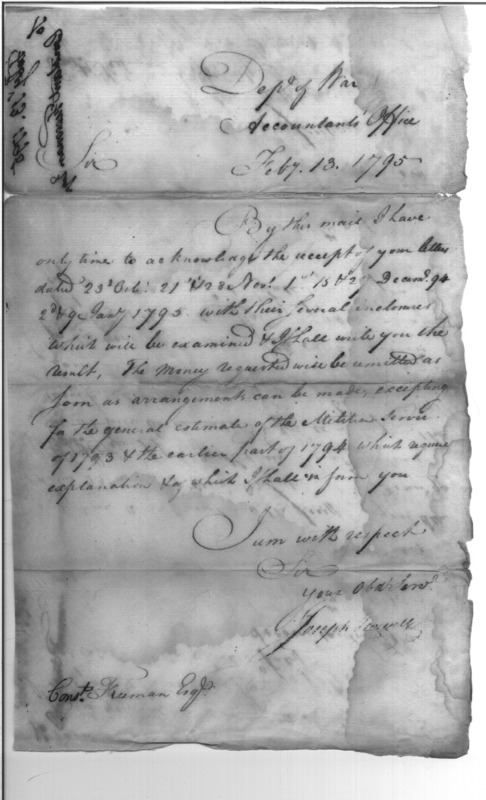 Dept. of War
Accountants Office
Feby. 13. 1795
Sir
By this mail I have
only time to acknowledge the receipt of your letters
dated 23d Octr. 21 & 28 Novr. 1st 15 & 29 Decemr. 94
2d & 9 Jany 1795 with their several inclosures
which will be examined & I shall write you the
result, The money requested will be remitted as
soon as arrangements can be made, excepting
for the general estimate of the Militia Service
of 1793 & the earlier part of 1794 which require
explanation & of which I shall inform you
I am with respect
Sir
your Obdt Servt.
Joseph Howell
Constt. Freeman Esqr.